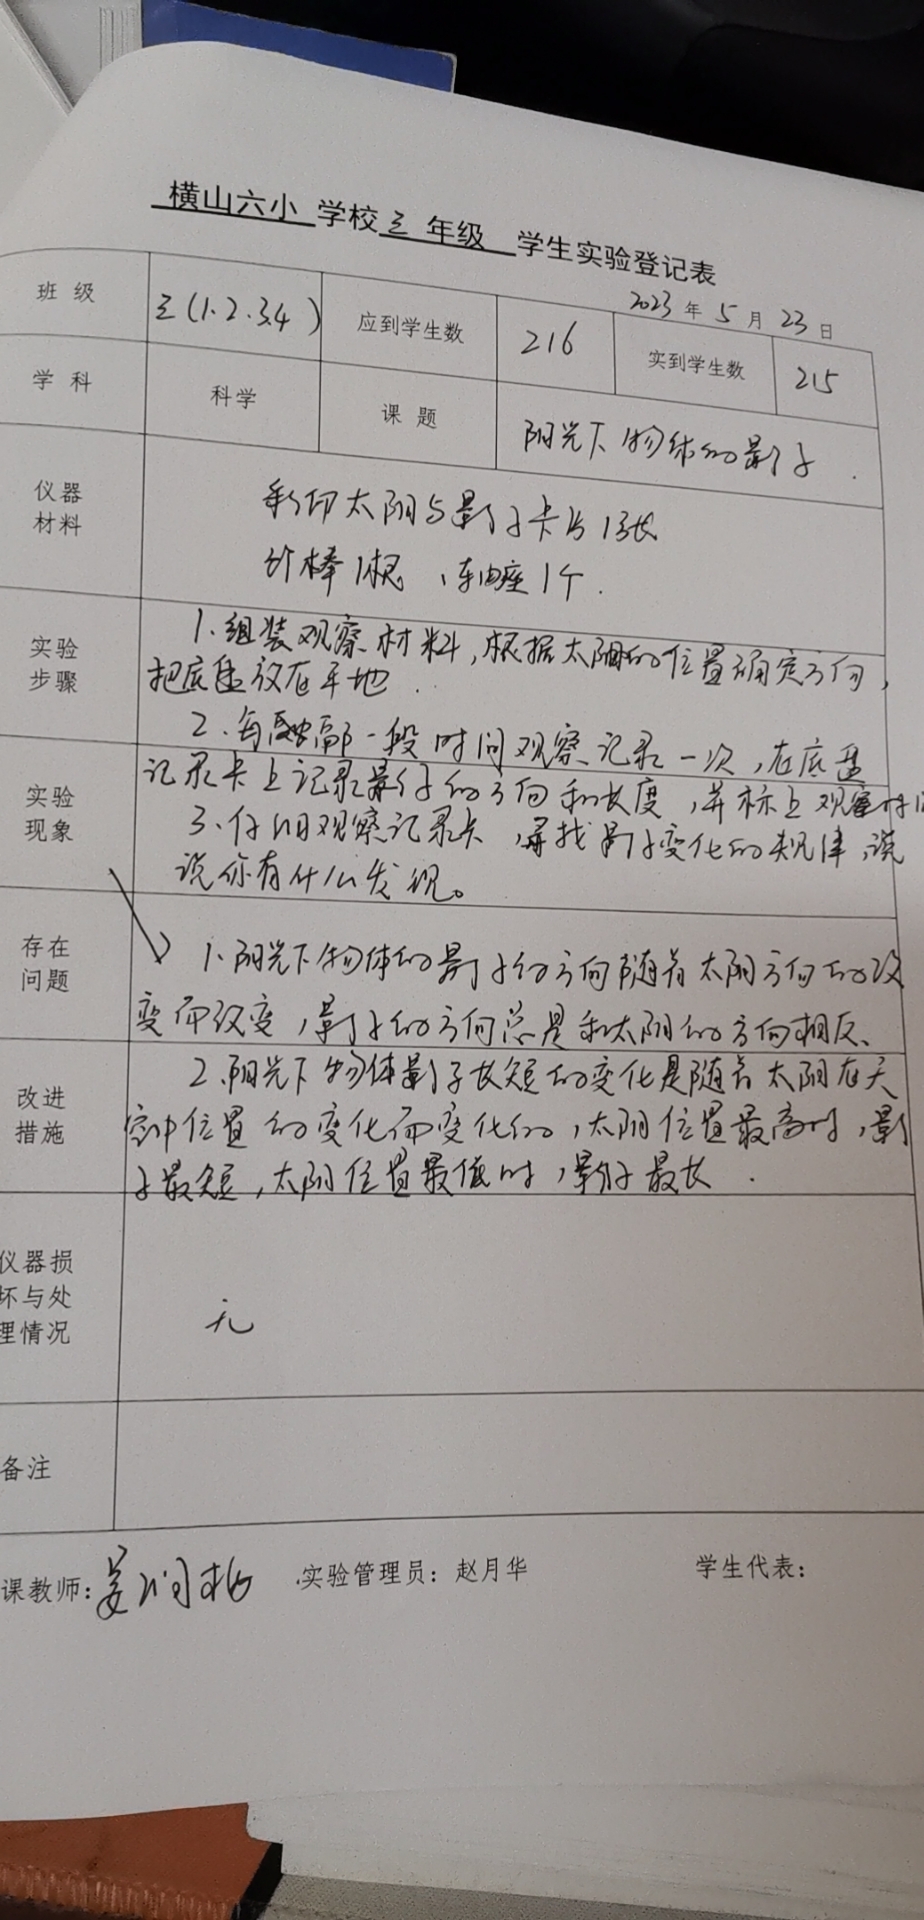 横山六小 学校 三 年级 学生实验登记表
2023 年 5 月 23 日
班 级 三(1.2.3.4) 应到学生数 216 实到学生数 215
学 科 科学 课 题 阳光下物体的影子
仪器材料
彩印太阳与影子卡片1张
1根、底座1个.
实验步骤
1.组装观察材料,根据太阳的位置确定方向,
把底盘放在平地.
2.每隔一段时间观察记录一次,在底盘
实验现象
记录卡上记录影子的方向和长度,并标上观察时间
3.仔细观察记录卡,寻找影子变化的规律,说
说你有什么发现。
存在问题
1.阳光下物体的影子的方向随着太阳方向的改
变而改变,影子的方向总是和太阳的方向相反、
改进措施
2.阳光下物体影子长短的变化是随着太阳在天
空中位置的变化而变化的,太阳位置最高时,影
子最短,太阳位置最低时,影子最长.
仪器损
坏与处
理情况
无
备注
课教师: 实验管理员:赵月华 学生代表: